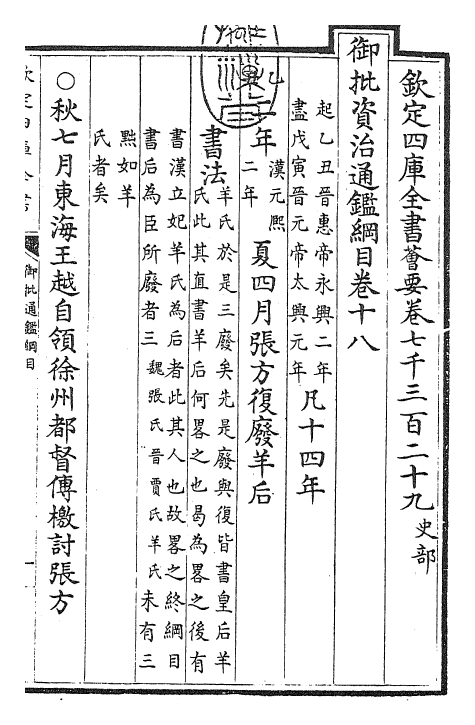 欽定四庫全書薈要卷七千三百二十九 史部
御批資治通鑑綱目卷十八
起乙丑晉惠帝永興二年
盡戊寅晉元帝太興元年
凡十四年
乙丑
二年
漢元熙
二年
夏四月張方復廢羊后
書法
羊氏於是三廢矣先是廢與復皆書皇后羊
氏此其直書羊后何畧之也曷為畧之後有
書漢立妃羊氏為后者此其人也故畧之終綱目
書后為臣所廢者三 魏張氏晉賈氏羊氏 未有三
黜如羊
氏者矣
○秋七月東海王越自領徐州都督傳檄討張方
欽定四庫全書
御批通鑑綱目
一